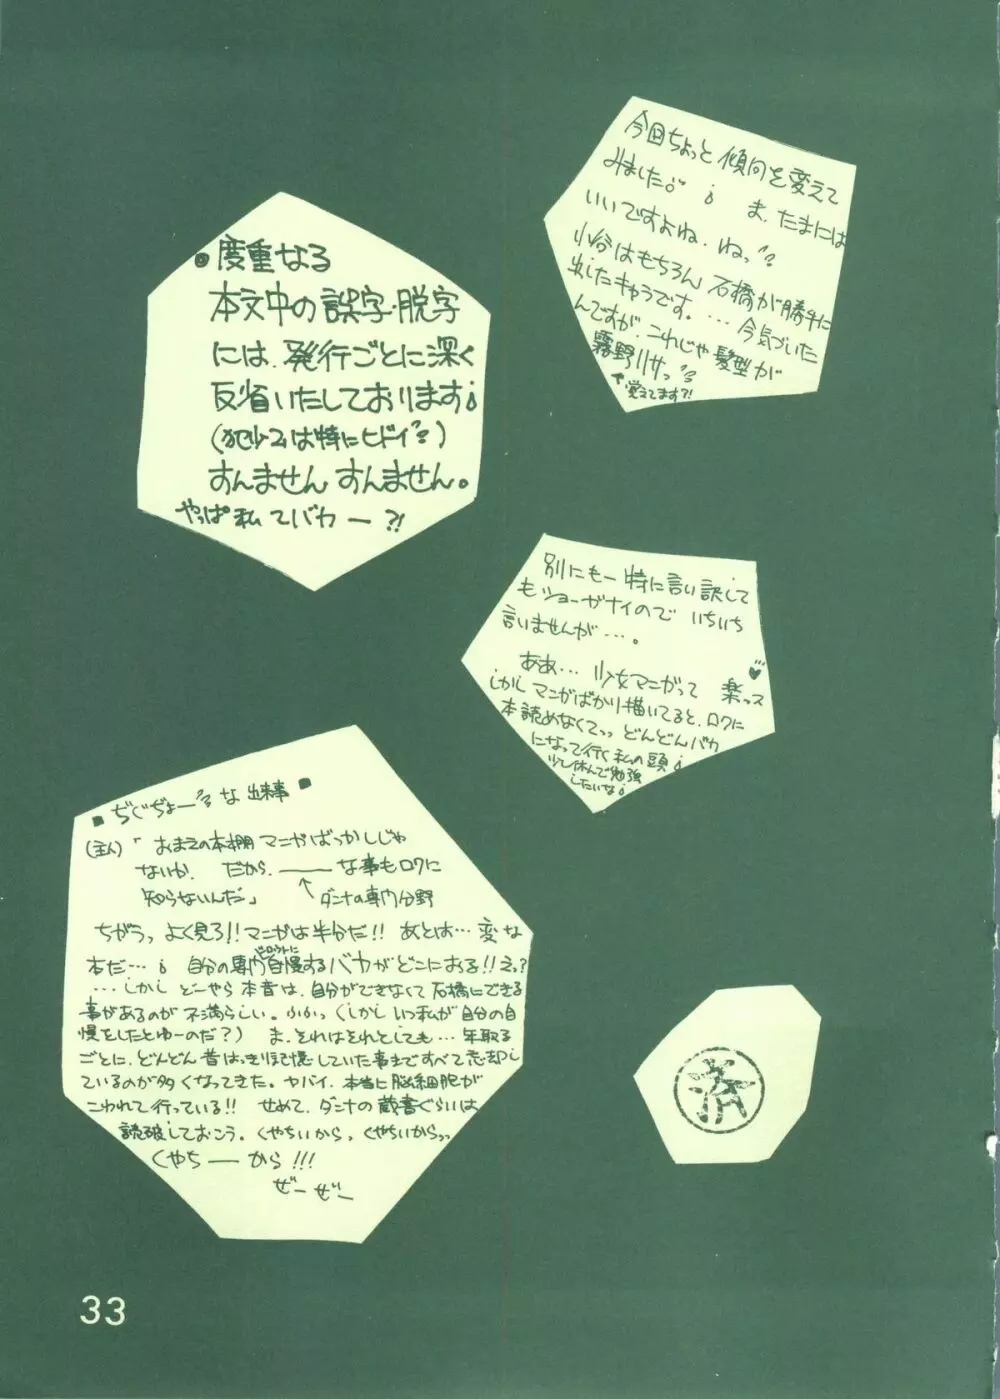 今回ちょっと傾向を変えて
みました。 ま、たまには
いいですよね、ねっ
小谷はもちろん 石橋が勝手に
出したキャラです。… 今気づいた
んですが、これじゃ髪型が
霧野リサっ
↑覚えてます?!
◎度重なる
本文中の誤字・脱字
には、発行ごとに深く
反省いたしております
は特にヒドイ
すんません すんません。
やっぱ私てバカー?!
別にもー特に言い訳して
もショーがナイので いちいち
言いませんが…。
ああ… 少女マンガって 楽っス♥
しかしマンガばかり描いてると、ロクに
本読めなくてっっ どんどんバカ
になって行く私の頭
少し休んで勉強
したいな
■ぢぐぢょー な 出来事■
(主人)「おまえの本棚 マンガばっかしじゃ
ないか、 だから、――な事もロクに
知らないんだ」 ↑ダンナの専門分野
ちがうっ よく見ろ!! マンガは半分だ!! あとは… 変な
本だ… 自分の専門自慢するバカがどこにおる!! えっ?
…しかし どーやら本音は、自分ができなくて石橋にできる
事があるのが 不満らしい。ふふっ (しかし いつ私が自分の自
慢をしたとゆーのだ?) ま、それはそれとしても… 年取る
ごとに、どんどん昔はっきり記憶していた事まですべて忘却し
ているのが多くなってきた。ヤバイ、本当に脳細胞が
こわれて行っている!! せめて、ダンナの蔵書ぐらいは
読破しておこう。くやちいから、くやちいからっっ
くやちーから!!!
ぜーぜー
済
33